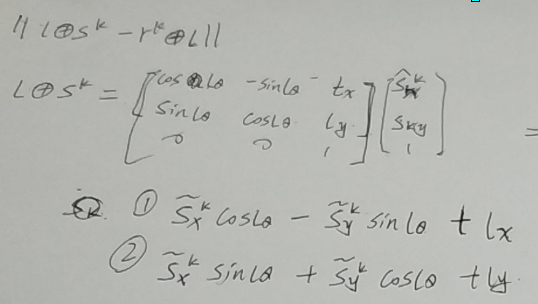 || l⊕s^k − r^k⊕l ||
l⊕s^k = [ cos lθ  −sin lθ  lx ] [ ŝx^k ]
[ sin lθ  cos lθ  ly ] [ sky ] =
[ 0  0  1 ] [ 1 ]
① s̃x^k cos lθ − s̃y^k sin lθ + lx
② s̃x^k sin lθ + s̃y^k cos lθ + ly